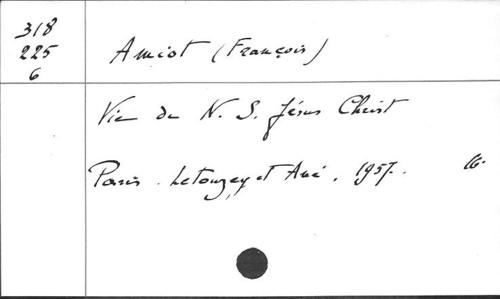 318
225
6
Amiot (François)
Vie de N. S. Jésus Christ
Paris. Letouzey et Ané, 1957. 16.